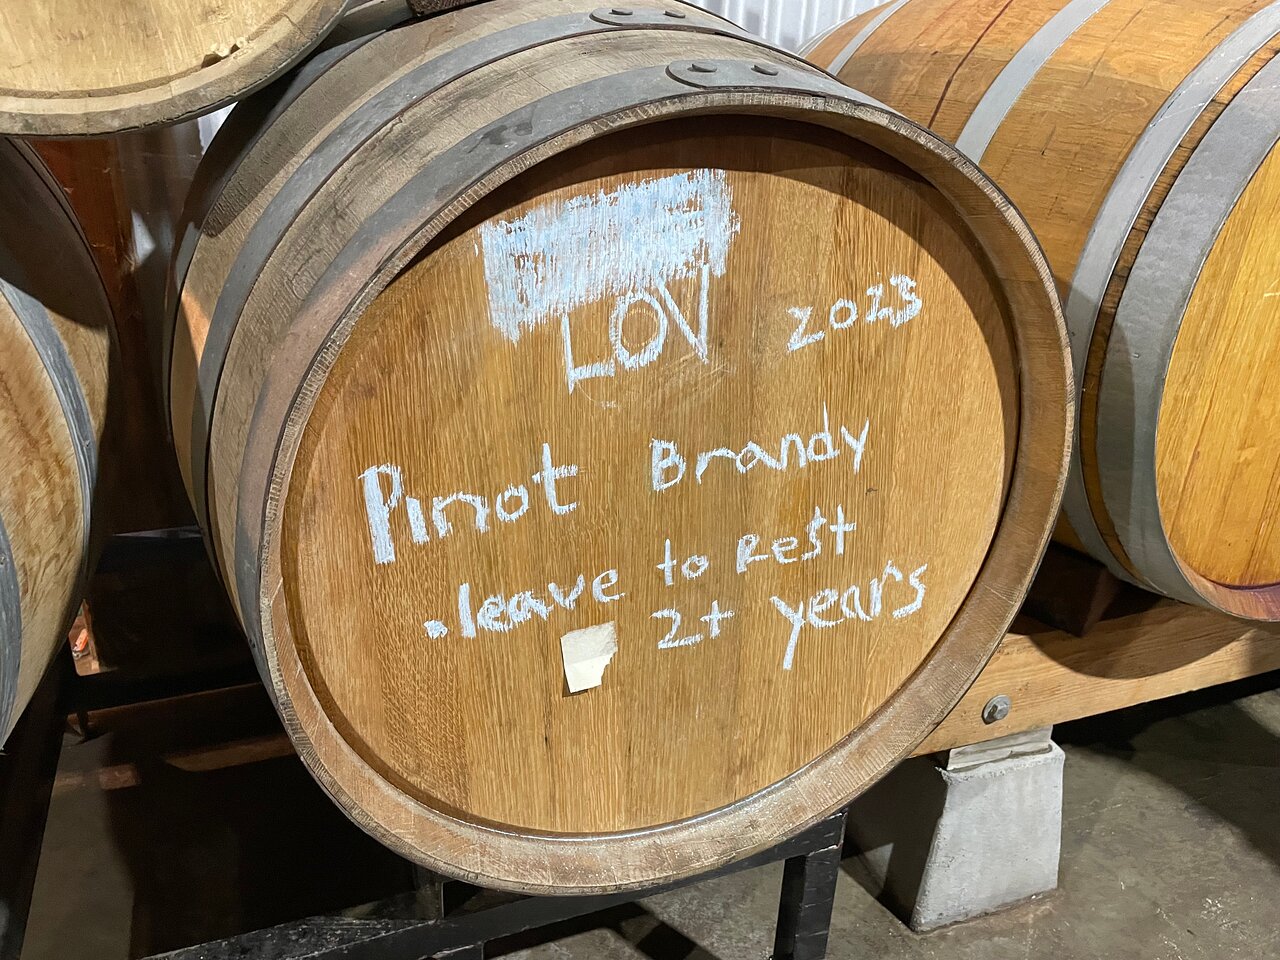 LOV 2023
Pinot Brandy
.leave to Rest
2+ years